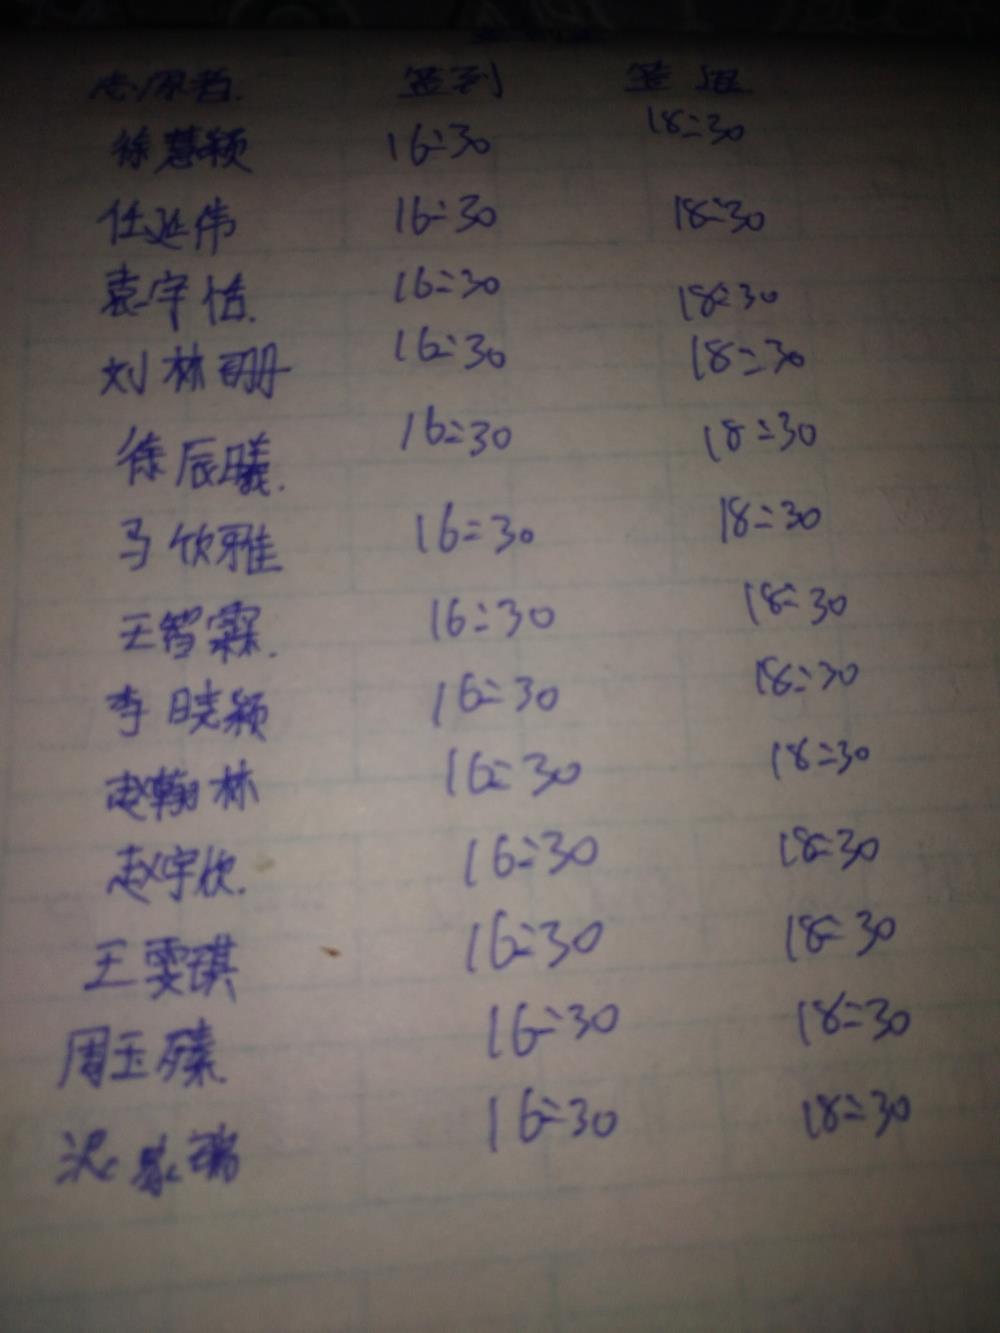 志愿者 签到 签退
徐慧颖 16:30 18:30
任延伟 16:30 18:30
袁宇恬 16:30 18:30
刘林珊 16:30 18:30
徐辰曦 16:30 18:30
马饮雅 16:30 18:30
王智霖 16:30 18:30
李晓颖 16:30 18:30
赵翰林 16:30 18:30
赵宇欣 16:30 18:30
王雯琪 16:30 18:30
周玉臻 16:30 18:30
16:30 18:30